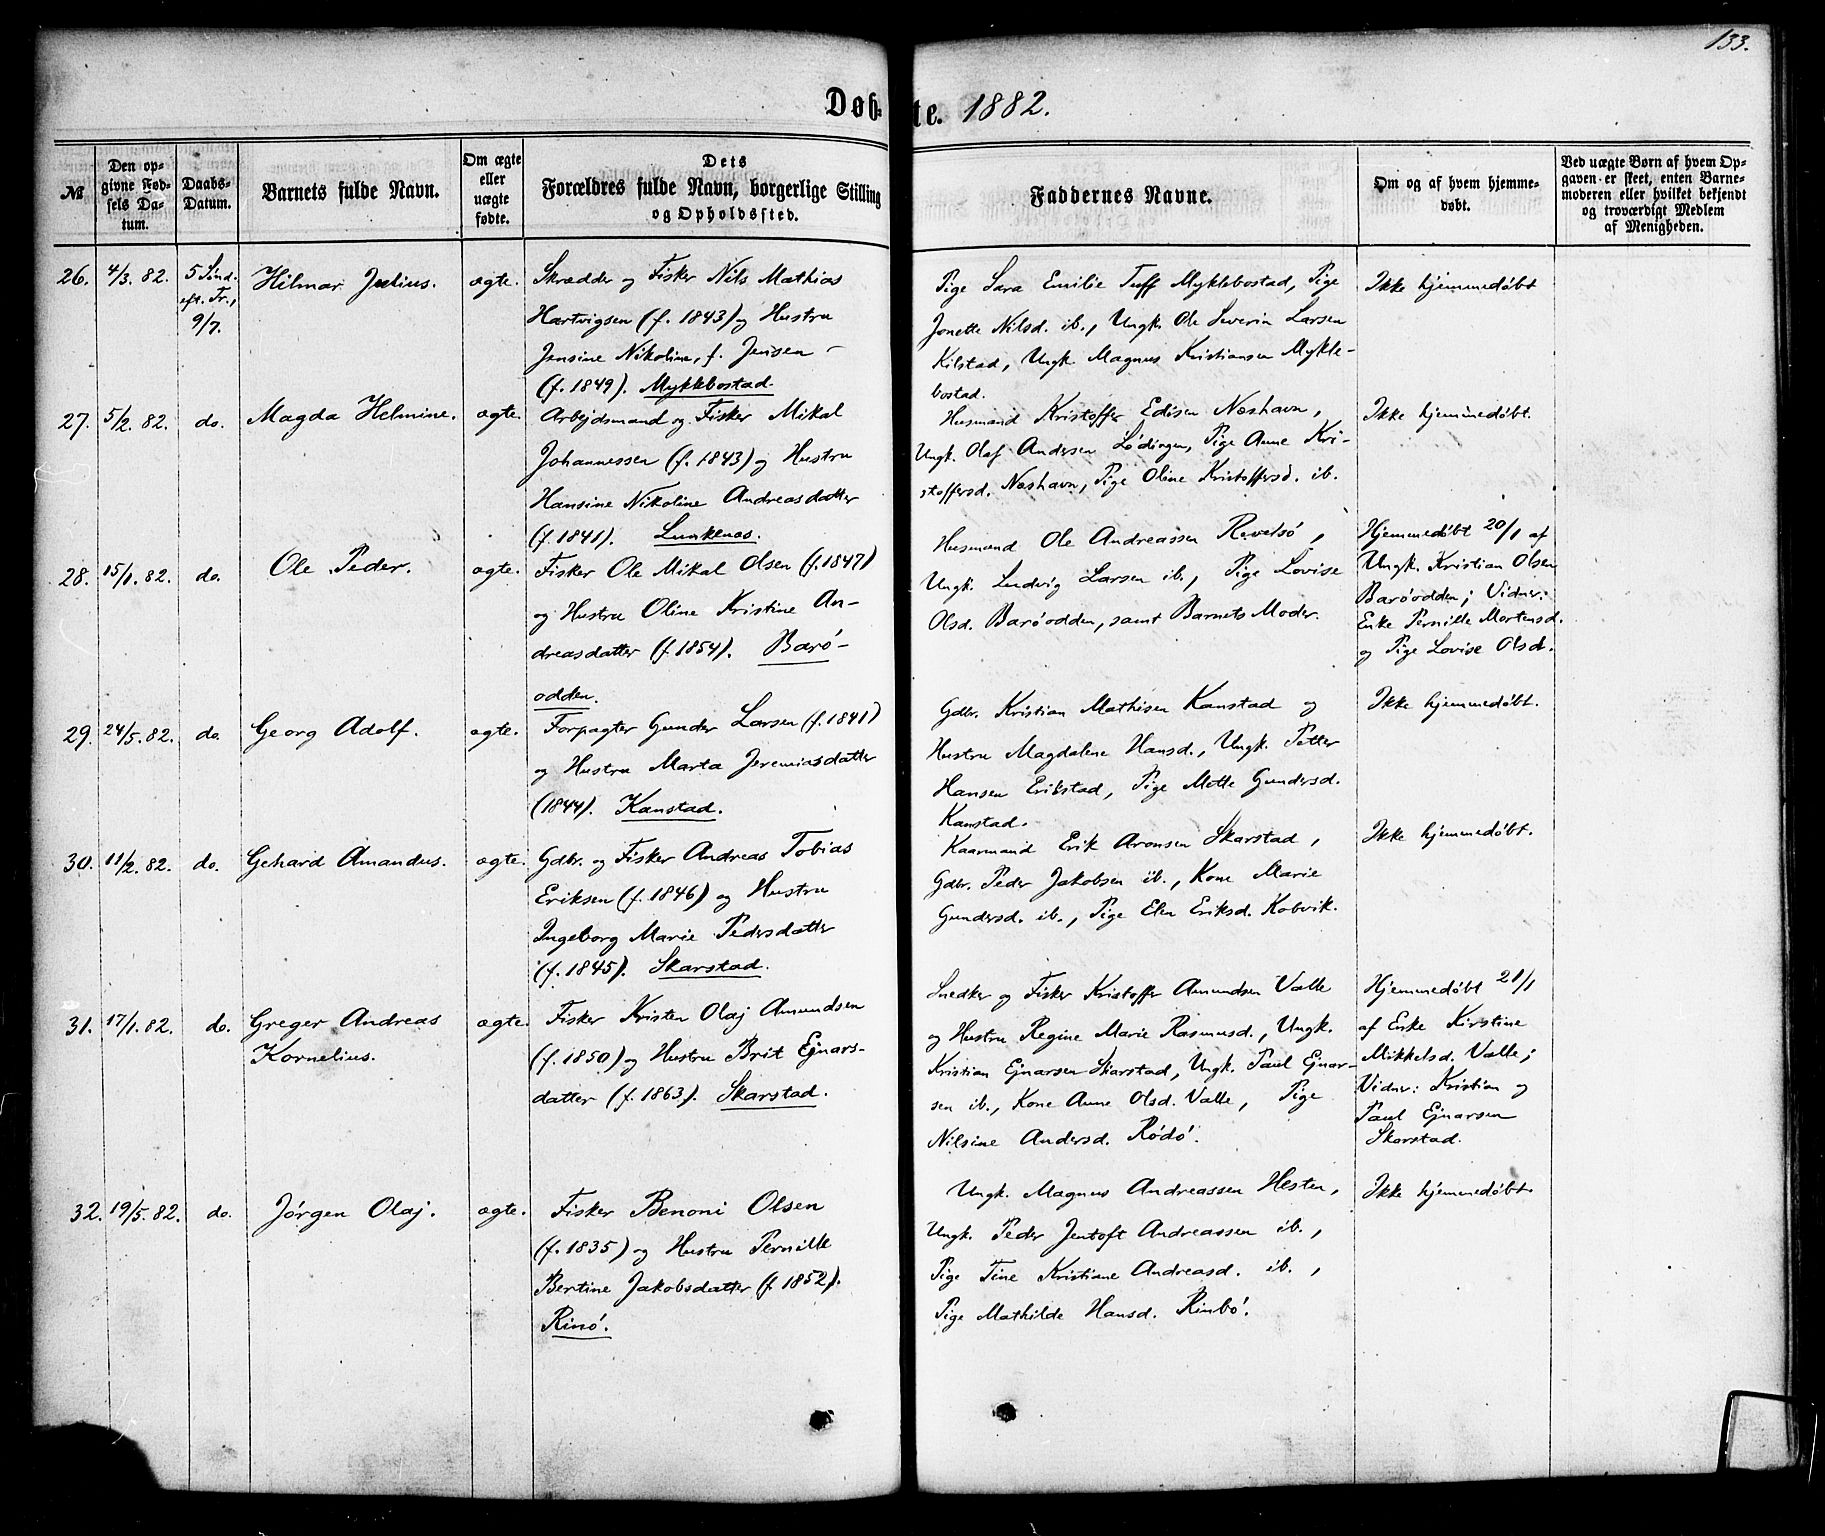 133.
Døbte. 1882.
№
Den opgivne Fødsels Datum.
Daabs-Datum.
Barnets fulde Navn.
Om ægte eller uægte fødte.
Dets Forældres fulde Navn, borgerlige Stilling og Opholdssted.
Faddernes Navne.
Om og af hvem hjemmedøbt.
Ved uægte Børn af hvem Opgaven er skeet, enten Barnemoderen eller hvilket bekjendt og troværdigt Medlem af Menigheden.
26. 4/3. 82. 5 Sønd. eft. Tr., 9/7. Hilmar Julius. ægte.
Skrædder og Fisker Nils Mathias
Hartvigsen (f. 1843) og Hustru
Jensine Nikoline, f. Jensen -
(f. 1849). Myklebostad.
Pige Sara Emilie Tuff Myklebostad, Pige
Jonette Nilsd. ib., Ungk. Ole Severin Larsen
Kilstad, Ungk. Magnus Kristiansen Mykle-
bostad.
Ikke hjemmedøbt
27. 5/2. 82. do. Magda Helmine. ægte.
Arbejdsmand og Fisker Mikal
Johannessen (f. 1843) og Hustru
Hansine Nikoline Andreasdatter
(f. 1841). Lunkenæs.
Husmand Kristoffer Edisen Næshavn,
Ungk. Olaf Andersen Lødingen, Pige Anne Kri-
stoffersd. Næshavn, Pige Oline Kristoffersd. ib.
Ikke hjemmedøbt.
28. 15/1. 82. do. Ole Peder. ægte.
Fisker Ole Mikal Olsen (f. 1847)
og Hustru Oline Kristine An-
dreasdatter (f. 1854). Barø-
odden.
Husmand Ole Andreassen Revelsø,
Ungk. Ludvig Larsen ib., Pige Lovise
Olsd. Barøodden, samt Barnets Moder.
Hjemmedøbt 20/1 af
Ungk. Kristian Olsen
Barøodden; Vidner:
Enke Pernille Mortensd.
og Pige Lovise Olsd.
29. 24/5. 82. do. Georg Adolf. ægte.
Forpagter Gunder Larsen (f. 1841)
og Hustru Marta Jeremiasdatter
(1844). Kanstad.
Gdbr. Kristian Mathisen Kanstad og
Hustru Magdalene Hansd., Ungk. Petter
Hansen Erikstad, Pige Mette Gundersd.
Kanstad.
Ikke hjemmedøbt.
30. 11/2. 82. do. Gehard Amandus. ægte.
Gdbr. og Fisker Andreas Tobias
Eriksen (f. 1846) og Hustru
Ingeborg Marie Pedersdatter
(f. 1845). Skarstad.
Kaarmand Erik Aronsen Skarstad,
Gdbr. Peder Jakobsen ib., Kone Marie
Gundersd. ib., Pige Elen Eriksd. Kobvik.
Ikke hjemmedøbt.
31. 17/1. 82. do. Greger Andreas
Kornelius. ægte.
Fisker Kristen Olaj Amundsen
(f. 1850) og Hustru Brit Ejnars-
datter (f. 1863). Skarstad.
Snedker og Fisker Kristoffer Amundsen Valle
og Hustru Regine Marie Rasmusd., Ungk.
Kristian Ejnarsen Skarstad, Ungk. Paul Ejnar-
sen ib., Kone Anne Olsd. Valle, Pige
Nilsine Andersd. Rødø.
Hjemmedøbt 21/1
af Enke Kirstine
Mikkelsd. Valle;
Vidner: Kristian og
Paul Ejnarsen
Skarstad.
32. 19/5. 82. do. Jørgen Olaj. ægte.
Fisker Benoni Olsen
(f. 1835) og Hustru Pernille
Bertine Jakobsdatter (f. 1852).
Rinø.
Ungk. Magnus Andreassen Hesten,
Ungk. Peder Jentoft Andreassen ib.,
Pige Tine Kristiane Andreasd. ib.,
Pige Mathilde Hansd. Rinbø.
Ikke hjemmedøbt.